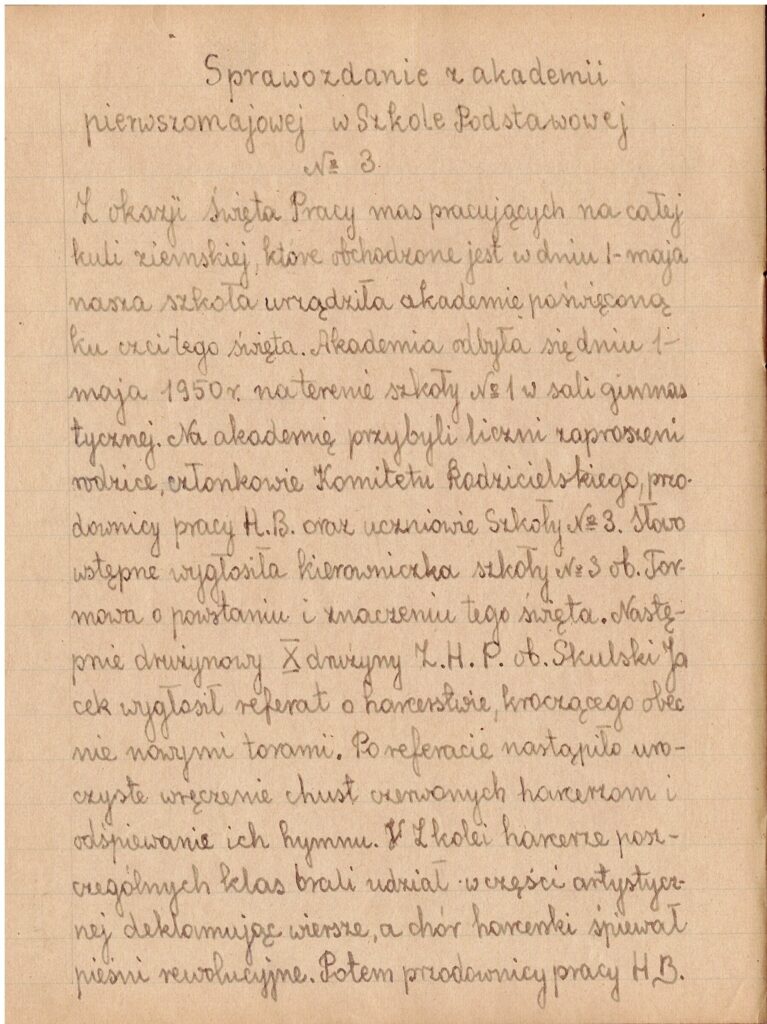 Sprawozdanie z akademii
pierwszomajowej w Szkole Podstawowej
№ 3
Z okazji Święta Pracy mas pracujących na całej
kuli ziemskiej, które obchodzone jest w dniu 1-maja
nasza szkoła urządziła akademię poświęconą
ku czci tego święta. Akademia odbyła się dniu 1-
maja 1950 r. na terenie szkoły № 1 w sali gimnas
tycznej. Na akademię przybyli liczni zaproszeni
rodzice, członkowie Komitetu Rodzicielskiego, przo-
downicy pracy H.B. oraz uczniowie Szkoły № 3. Słowo
wstępne wygłosiła kierowniczka szkoły № 3 ob. For-
mowa o powstaniu i znaczeniu tego święta. Nastę-
pnie drużynowy X drużyny Z.H.P. ob. Skulski Ja
cek wygłosił referat o harcerstwie, kroczącego obec
nie nowymi torami. Po referacie nastąpiło uro-
czyste wręczenie chust czerwonych harcerzom i
odśpiewanie ich hymnu. Z kolei harcerze posz-
czególnych klas brali udział w części artystycz-
nej deklamując wiersze, a chór harcerski śpiewał
pieśni rewolucyjne. Potem przodownicy pracy H.B.